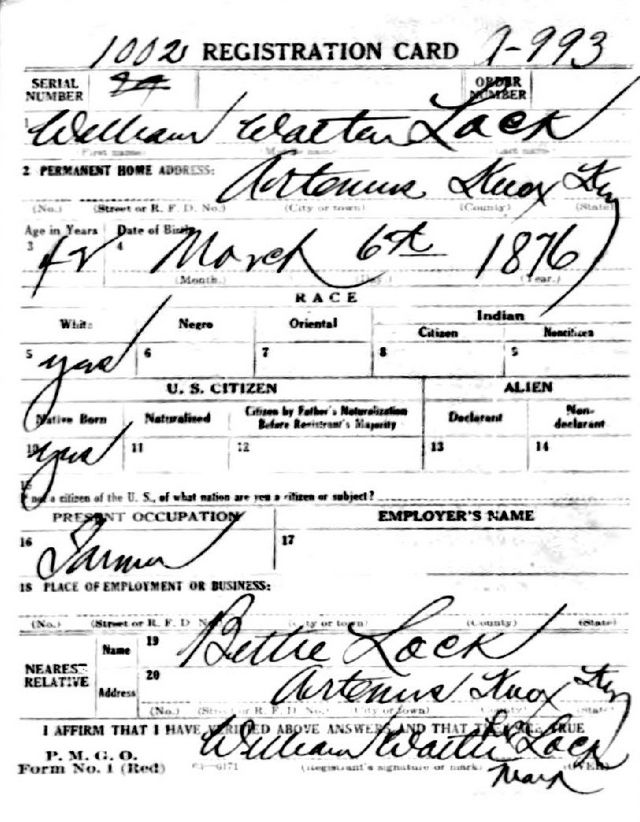 1002 REGISTRATION CARD A-993
SERIAL NUMBER ORDER NUMBER
1 William Walter Lock
First name Middle name Last name
2 PERMANENT HOME ADDRESS:
Artemus Knox Ky
(No.) (Street or R. F. D. No.) (City or town) (County) (State)
Age in Years Date of Birth
3 42 4 March 6th 1876
(Month.) (Day.) (Year.)
RACE
White Negro Oriental Indian
Citizen Noncitizen
5 yes 6 7 8 9
U. S. CITIZEN ALIEN
Native Born Naturalized Citizen by Father's Naturalization Before Registrant's Majority Declarant Non-declarant
10 yes 11 12 13 14
15
If not a citizen of the U. S., of what nation are you a citizen or subject?
PRESENT OCCUPATION EMPLOYER'S NAME
16 Farmer 17
18 PLACE OF EMPLOYMENT OR BUSINESS:
(No.) (Street or R. F. D. No.) (City or town) (County) (State)
NEAREST RELATIVE
Name 19 Bettie Lock
Address 20 Artemus Knox Ky
(No.) (Street or R. F. D. No.) (City or town) (County) (State)
I AFFIRM THAT I HAVE VERIFIED ABOVE ANSWERS AND THAT THEY ARE TRUE
P. M. G. O.
Form No. 1 (Red) William Walter his Lock
(Registrant's signature or mark) (OVER)
mark